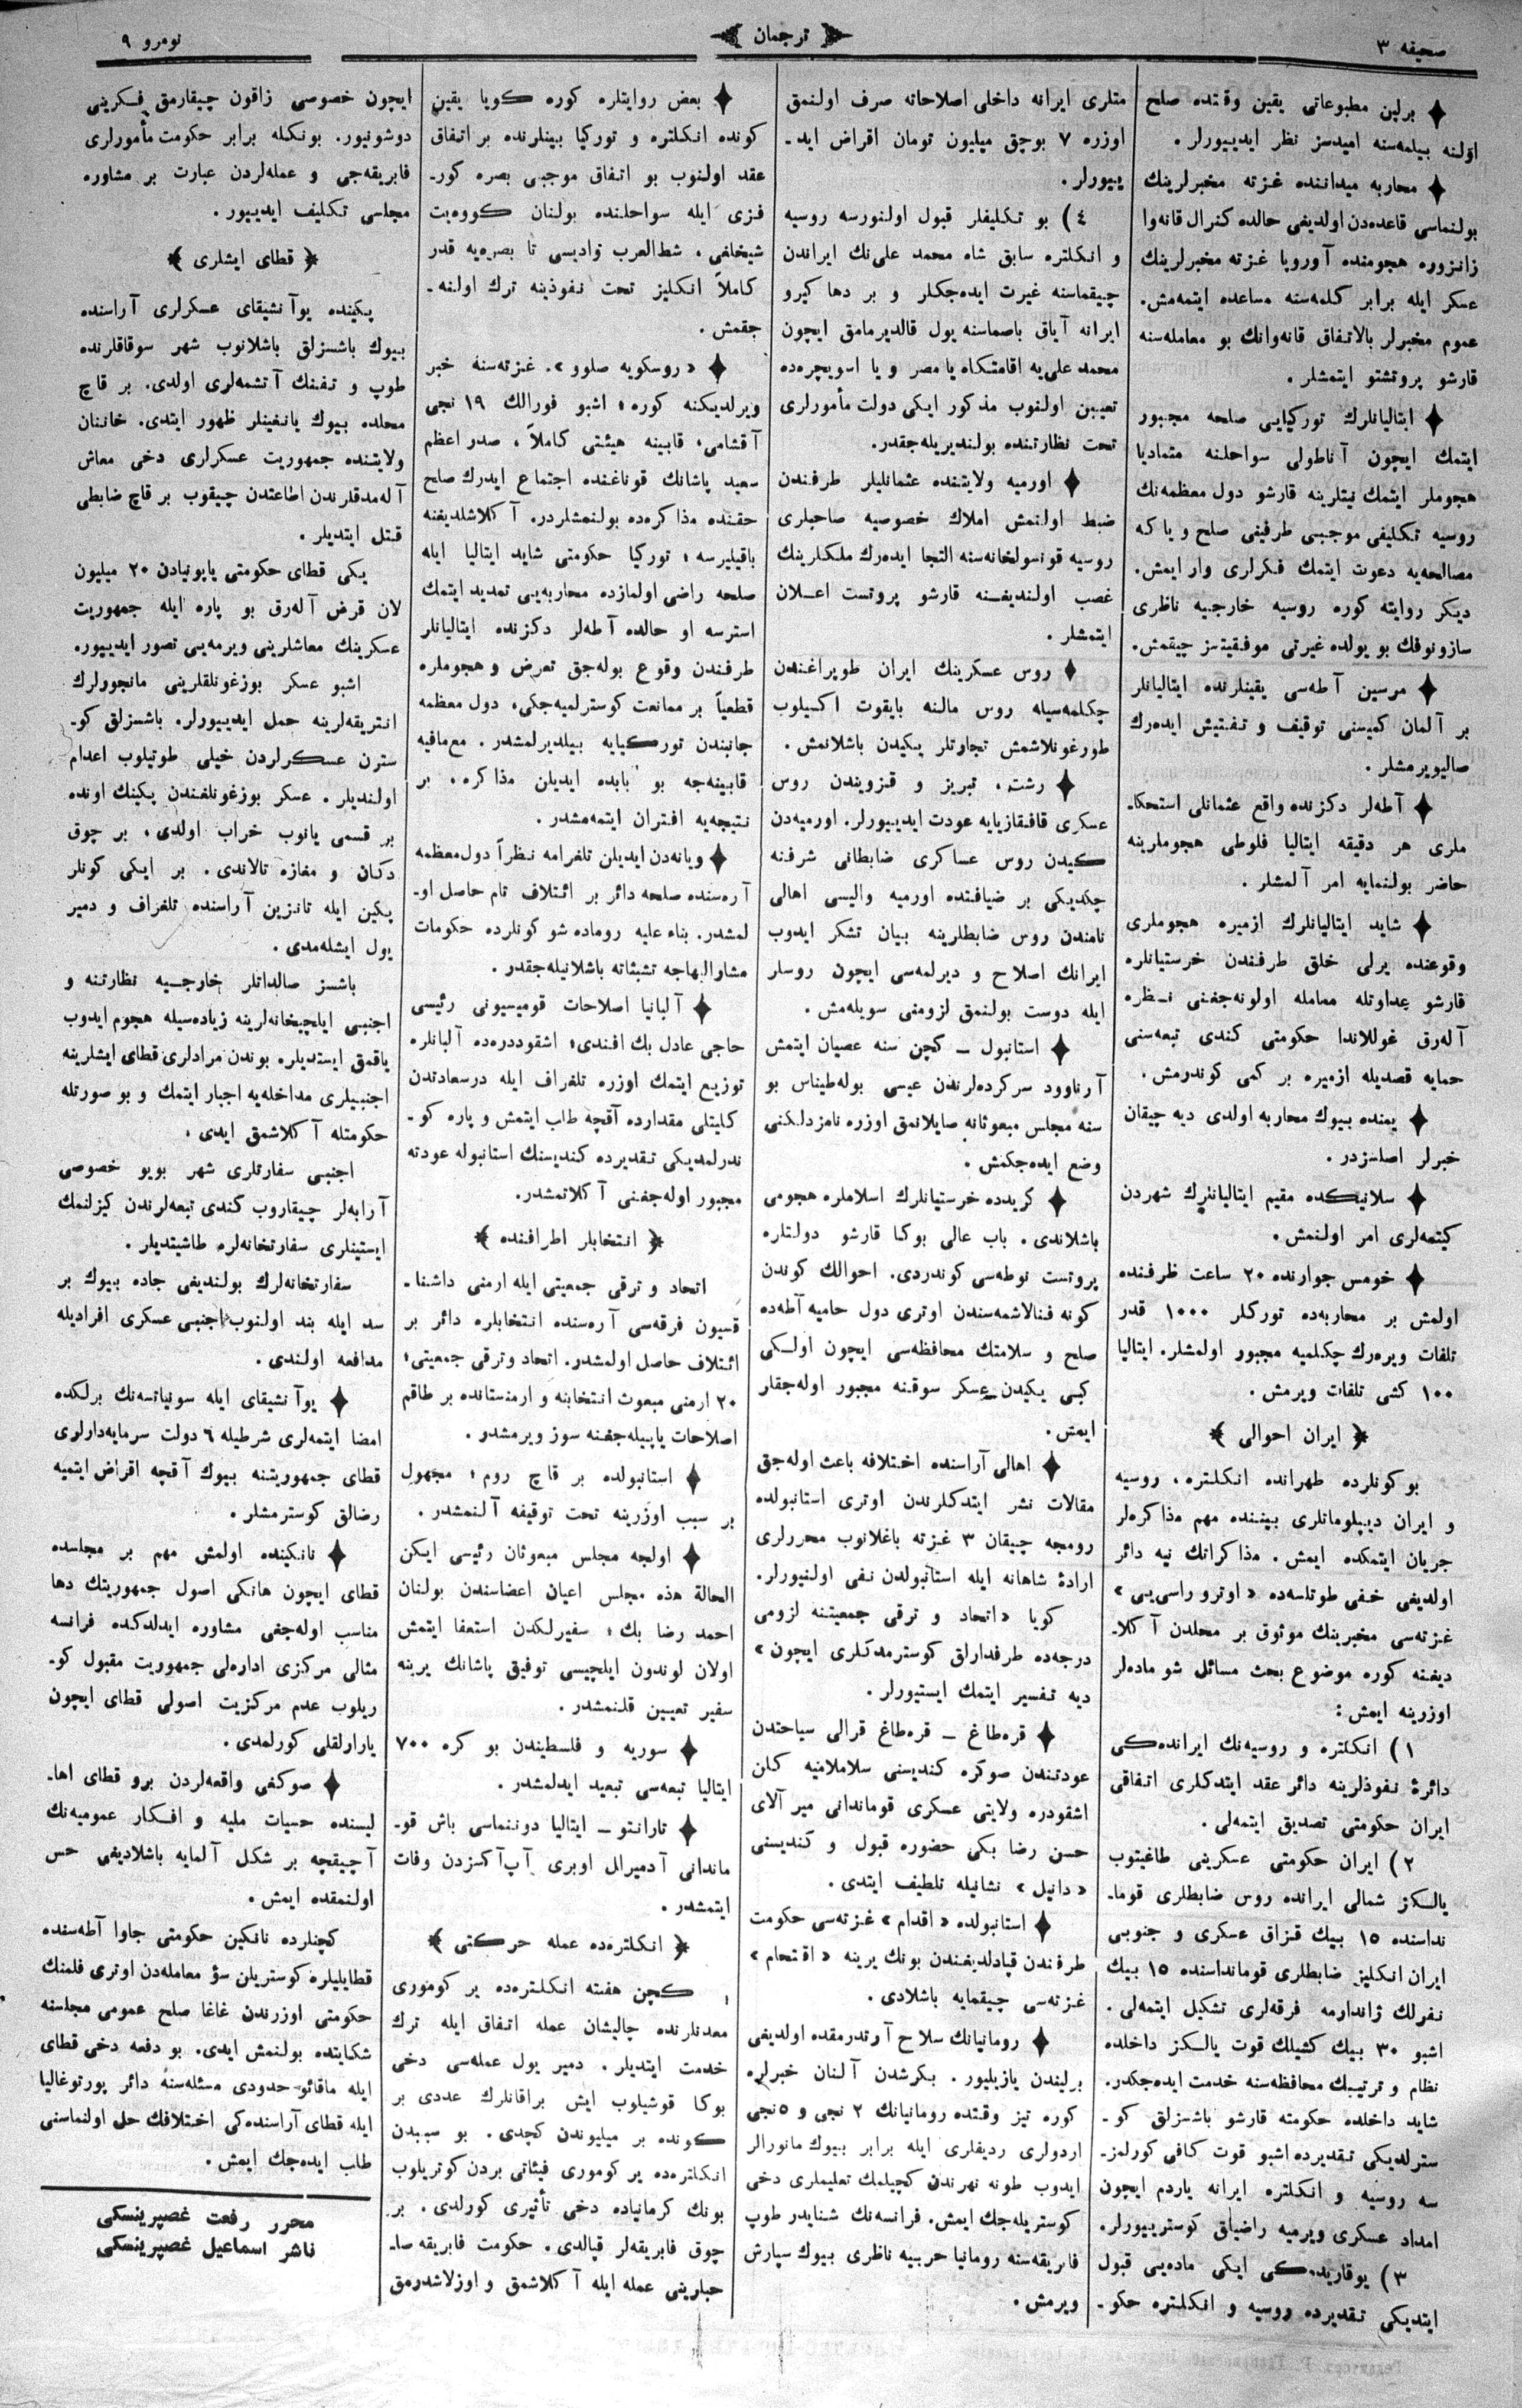 صحیفه ۳
ترجمان
نومرو ۹
برلین مطبوعاتی یقین وقتده صلح
اولنه بیلمه‌سنه امیدسز نظر ایدییورلر .
محاربه میداننده غزته مخبرلرینك
بولنماسی قاعده‌دن اولدیغی حالده كنرال قانه‌وا
زانزوره هجومنده آوروپا غزته مخبرلرینك
عسكر ایله برابر كلمه‌سنه مساعده ایتمه‌مش.
عموم مخبرلر بالاتفاق قانه‌وانك بو معامله‌سنه
قارشو پروتشتو ایتمشلر .
ایتالیانلرك توركیایی صلحه مجبور
ایتمك ایچون آناطولی سواحلنه متمادیا
هجوملر ایتمك نیتلرینه قارشو دول معظمه‌نك
روسیه تكلیفی موجبی طرفینی صلح و یا كه
مصالحه‌یه دعوت ایتمك فكرلری وار ایمش.
دیكر روایته كوره روسیه خارجیه ناظری
سازونوفك بو یولده غیرتی موفقیتسز چیقمش.
مرسین آطه‌سی یقینلرنده ایتالیانلر
بر آلمان كمیسنی توقیف و تفتیش ایده‌رك
صالیویرمشلر .
آطه‌لر دكزنده واقع عثمانلی استحكا-
ملری هر دقیقه ایتالیا فلوطی هجوملرینه
حاضر بولنمایه امر آلمشلر .
شاید ایتالیانلرك ازمیره هجوملری
وقوعنده یرلی خلق طرفندن خرستیانلره
قارشو عداوتله معامله اولونه‌جغنی نظره
آله‌رق غوللاندا حكومتی كندی تبعه‌سنی
حمایه قصدیله ازمیره بر كمی كوندرمش .
یمنده بیوك محاربه اولدی دیه چیقان
خبرلر اصلسزدر .
سلانیكده مقیم ایتالیانلرك شهردن
كیتمه‌لری امر اولنمش.
خومس جوارنده ۲۰ ساعت ظرفنده
اولمش بر محاربه‌ده توركلر ۱۰۰۰ قدر
تلفات ویره‌رك چكلمیه مجبور اولمشلر. ایتالیا
۱۰۰ كشی تلفات ویرمش .
﴿ ایران احوالی ﴾
بو كونلرده طهرانده انكلتره ، روسیه
و ایران دیپلوماتلری بیننده مهم مذاكره‌لر
جریان ایتمكده ایمش . مذاكراتك نیه دائر
اولدیغی خفی طوتلسه‌ده « اوترو راسی‌یی »
غزته‌سی مخبرینك موثوق بر محلدن آكلا-
دیغنه كوره موضوع بحث مسائل شو ماده‌لر
اوزرینه ایمش :
۱) انكلتره و روسیه‌نك ایرانده‌كی
دائرۀ نفوذلرینه دائر عقد ایتدكلری اتفاقی
ایران حكومتی تصدیق ایتمه‌لی .
۲) ایران حكومتی عسكرینی طاغیتوب
یالكز شمالی ایرانده روس ضابطلری قوما-
نداسنده ۱۵ بیك قزاق عسكری و جنوبی
ایران انكلیز ضابطلری قومانداسنده ۱۵ بیك
نفرلك ژاندارمه فرقه‌لری تشكیل ایتمه‌لی .
اشبو ۳۰ بیك كشیلك قوت یالكز داخلده
نظام و ترتیبك محافظه‌سنه خدمت ایده‌جكدر.
شاید داخلده حكومته قارشو باشسزلق كو-
سترلدیكی تقدیرده اشبو قوت كافی كورلمز-
سه روسیه و انكلتره ایرانه یاردم ایچون
امداد عسكری ویرمیه راضیلق كوسترییورلر.
۳) یوقاریده‌كی ایكی ماده‌یی قبول
ایتدیكی تقدیرده روسیه و انكلتره حكو-
متلری ایرانه داخلی اصلاحاته صرف اولنمق
اوزره ۷ بوچق میلیون تومان اقراض اید-
ییورلر .
٤) بو تكلیفلر قبول اولنورسه روسیه
و انكلتره سابق شاه محمد علی‌نك ایراندن
چیقماسنه غیرت ایده‌جكلر و بر دها كیرو
ایرانه آیاق باصماسنه یول قالدیرمامق ایچون
محمد علی‌یه اقامتكاه یا مصر و یا اسویچره‌ده
تعیین اولنوب مذكور ایكی دولت مأمورلری
تحت نظارتنده بولندیریله‌جقدر.
اورمیه ولایتنده عثمانلیلر طرفندن
ضبط اولنمش املاك خصوصیه صاحبلری
روسیه قونسولخانه‌سنه التجا ایده‌رك ملكلرینك
غصب اولندیغنه قارشو پروتست اعلان
ایتمشلر .
روس عسكرینك ایران طوپراغندن
چكلمه‌سیله روس مالنه بایقوت اكسیلوب
طورغونلاشمش تجارتلر یكیدن باشلانمش .
رشت، تبریز و قزویندن روس
عسكری قافقازیایه عودت ایدییورلر. اورمیه‌دن
كیدن روس عساكری ضابطانی شرفنه
چكدیكی بر ضیافتده اورمیه والیسی اهالی
نامندن روس ضابطلرینه بیان تشكر ایدوب
ایرانك اصلاح و دیرلمه‌سی ایچون روسلر
ایله دوست بولنمق لزومنی سویله‌مش .
استانبول ــ كچن سنه عصیان ایتمش
آرناوود سركرده‌لرندن عیسی بوله‌طیناس بو
سنه مجلس مبعوثانه صایلانمق اوزره نامزدلكنی
وضع ایده‌جكمش .
كریدده خرستیانلرك اسلاملره هجومی
باشلاندی . باب عالی بوكا قارشو دولتلره
پروتست نوطه‌سی كوندردی. احوالك كوندن
كونه فنالاشمه‌سندن اوتری دول حامیه آطه‌ده
صلح و سلامتك محافظه‌سی ایچون اولكی
كبی یكیدن عسكر سوقنه مجبور اوله‌جقلر
ایمش.
اهالی آراسنده اختلافه باعث اوله‌جق
مقالات نشر ایتدكلرندن اوتری استانبولده
رومجه چیقان ۳ غزته باغلانوب محررلری
ارادۀ شاهانه ایله استانبولدن نفی اولنیورلر.
كویا « اتحاد و ترقی جمعیتنه لزومی
درجه‌ده طرفدارلق كوسترمدكلری ایچون »
دیه تفسیر ایتمك ایستیورلر .
قره‌طاغ ــ قره‌طاغ قرالی سیاحتدن
عودتندن صوكره كندیسنی سلاملامیه كلن
اشقودره ولایتی عسكری قوماندانی میر آلای
حسن رضا بكی حضوره قبول و كندیسنی
« دانیل » نشانیله تلطیف ایتدی .
استانبولده « اقدام » غزته‌سی حكومت
طرفندن قپادلدیغندن بونك یرینه « اقتحام »
غزته‌سی چیقمایه باشلادی.
رومانیانك سلاح آرتدرمقده اولدیغی
برلیندن یازیلیور . بكرشدن آلنان خبرلره
كوره تیز وقتده رومانیانك ۲ نجی و ۵ نجی
اردولری ردیفلری ایله برابر بیوك مانورالر
ایدوب طونه نهرندن كچیلمك تعلیملری دخی
كوستریله‌جك ایمش. فرانسه‌نك شنایدر طوپ
فابریقه‌سنه رومانیا حربیه ناظری بیوك سپارش
ویرمش .
بعض روایتلره كوره كویا یقین
كونده انكلتره و توركیا بینلرنده بر اتفاق
عقد اولنوب بو اتفاق موجبی بصره كور-
فزی ایله سواحلنده بولنان كووه‌یت
شیخلغی ، شط‌العرب وادیسی تا بصره‌یه قدر
كاملاً انكلیز تحت نفوذینه ترك اولنه-
جقمش .
« روسكویه صلوو » . غزته‌سنه خبر
ویرلدیكنه كوره ، اشبو فورالك ۱۹ نجی
آقشامی ، قابینه هیئتی كاملاً ، صدر اعظم
سعید پاشانك قوناغنده اجتماع ایدرك صلح
حقنده مذاكره‌ده بولنمشلردر. آكلاشلدیغنه
باقیلیرسه ، توركیا حكومتی شاید ایتالیا ایله
صلحه راضی اولمازده محاربه‌یی تمدید ایتمك
استرسه او حالده آطه‌لر دكزنده ایتالیانلر
طرفندن وقوع بوله‌جق تعرض و هجوملره
قطعیاً بر ممانعت كوسترلمیه‌جكی، دول معظمه
جانبندن توركیایه بیلدیرلمشدر . مع‌مافیه
قابینه‌جه بو بابده ایدیلن مذاكره، بر
نتیجه‌یه اقتران ایتمه‌مشدر .
ویانه‌دن ایدیلن تلغرامه نظراً دول معظمه
آره‌سنده صلحه دائر بر ائتلاف تام حاصل او-
لمشدر. بناء علیه روماده شو كونلرده حكومات
مشارالیهاجه تشبثاته باشلانیله‌جقدر.
آلبانیا اصلاحات قومیسیونی رئیسی
حاجی عادل بك افندی ، اشقودره‌ده آلبانلره
توزیع ایتمك اوزره تلغراف ایله درسعادتدن
كلیتلی مقدارده آقچه طلب ایتمش و پاره كو-
ندرلمدیكی تقدیرده كندیسنك استانبوله عودته
مجبور اوله‌جغنی آكلاتمشدر.
﴿ انتخابلر اطرافنده ﴾
اتحاد و ترقی جمعیتی ایله ارمنی داشنا-
قسیون فرقه‌سی آره‌سنده انتخابلره دائر بر
ائتلاف حاصل اولمشدر. اتحاد وترقی جمعیتی ،
۲۰ ارمنی مبعوث انتخابنه و ارمنستانده بر طاقم
اصلاحات یاپیله‌جغنه سوز ویرمشدر .
استانبولده بر قاچ روم ، مجهول
بر سبب اوزرینه تحت توقیفه آلنمشدر .
اولجه مجلس مبعوثان رئیسی ایكن
الحالة هذه مجلس اعیان اعضاسندن بولنان
احمد رضا بك ، سفیرلكدن استعفا ایتمش
اولان لوندون ایلچیسی توفیق پاشانك یرینه
سفیر تعیین قلنمشدر .
سوریه و فلسطیندن بو كره ۷۰۰
ایتالیا تبعه‌سی تبعید ایدلمشدر .
تارانتو ــ ایتالیا دوننماسی باش قو-
ماندانی آدمیرال اوبری آپ‌آكسزدن وفات
ایتمشدر .
﴿ انكلتره‌ده عمله حركتی ﴾
كچن هفته انكلتره‌ده یر كوموری
معدنلرنده چالیشان عمله اتفاق ایله ترك
خدمت ایتدیلر . دمیر یول عمله‌سی دخی
بوكا قوشیلوب ایش براقانلرك عددی بر
كونده بر میلیوندن كچدی . بو سببدن
انكلتره‌ده یر كوموری فیئاتی بردن كوتریلوب
بونك كرمانیاده دخی تأثیری كورلدی . بر
چوق فابریقه‌لر قپالدی. حكومت فابریقه صا-
حبلرینی عمله ایله آكلاشمق و اوزلاشدرمق
ایچون خصوصی زاقون چیقارمق فكرینی
دوشونیور. بونكله برابر حكومت مأمورلری
فابریقه‌جی و عمله‌لردن عبارت بر مشاوره
مجلسی تكلیف ایدییور .
﴿ قطای ایشلری ﴾
پكینده یوآنشیقای عسكرلری آراسنده
بیوك باشسزلق باشلانوب شهر سوقاقلرنده
طوپ و تفنك آتشمه‌لری اولدی. بر قاچ
محلده بیوك یانغینلر ظهور ایتدی. خانتان
ولایتنده جمهوریت عسكرلری دخی معاش
آله‌مدقلرندن اطاعتدن چیقوب بر قاچ ضابطی
قتل ایتدیلر .
یكی قطای حكومتی یاپونیادن ۲۰ میلیون
لان قرض آله‌رق بو پاره ایله جمهوریت
عسكرینك معاشلرینی ویرمه‌یی تصور ایدییور.
اشبو عسكر بوزغونلقلرینی مانجورلرك
انتریقه‌لرینه حمل ایدییورلر. باشسزلق كو-
سترن عسكرلردن خیلی طوتیلوب اعدام
اولندیلر . عسكر بوزغونلغندن پكینك اونده
بر قسمی یانوب خراب اولدی، بر چوق
دكان و مغازه تالاندی . بر ایكی كونلر
پكین ایله تانزین آراسنده تلغراف و دمیر
یول ایشله‌مدی .
باشسز صالداتلر خارجیه نظارتنه و
اجنبی ایلچیخانه‌لرینه زیاده‌سیله هجوم ایدوب
یاقمق ایستدیلره بوندن مرادلری قطای ایشلرینه
اجنبیلری مداخله‌یه اجبار ایتمك و بو صورتله
حكومتله آكلاشمق ایدی .
اجنبی سفارتلری شهر بویو خصوصی
آرابه‌لر چیقاروب كندی تبعه‌لرندن كیزلنمك
ایستینلری سفارتخانه‌لره طاشیتدیلر .
سفارتخانه‌لرك بولندیغی جاده بیوك بر
سد ایله بند اولنوب اجنبی عسكری افرادیله
مدافعه اولندی .
یوآنشیقای ایله سونیاتسه‌نك برلكده
امضا ایتمه‌لری شرطیله ٦ دولت سرمایه‌دارلری
قطای جمهوریتنه بیوك آقچه اقراض ایتمیه
رضالق كوسترمشلر .
نانكینده اولمش مهم بر مجلسده
قطای ایچون هانكی اصول جمهوریتك دها
مناسب اوله‌جغی مشاوره ایدلدكده فرانسه
مثالی مركزی اداره‌لی جمهوریت مقبول كو-
ریلوب عدم مركزیت اصولی قطای ایچون
یارارلقلی كورلمدی .
صوكغی واقعه‌لردن برو قطای اها-
لیسنده حسیات ملیه و افكار عمومیه‌نك
آچیقچه بر شكل آلمایه باشلادیغی حس
اولنمقده ایمش .
كچنلرده نانكین حكومتی جاوا آطه‌سنده
قطایلیلره كوستریلن سؤ معامله‌دن اوتری فلمنك
حكومتی اوزرندن غاغا صلح عمومی مجلسنه
شكایتده بولنمش ایدی. بو دفعه دخی قطای
ایله ماقائو حدودی مسئله‌سنه دائر پورتوغالیا
ایله قطای آراسنده‌كی اختلافك حل اولنماسنی
طلب ایده‌جك ایمش .
محرر رفعت غصپرینسكی
ناشر اسماعیل غصپرینسكی